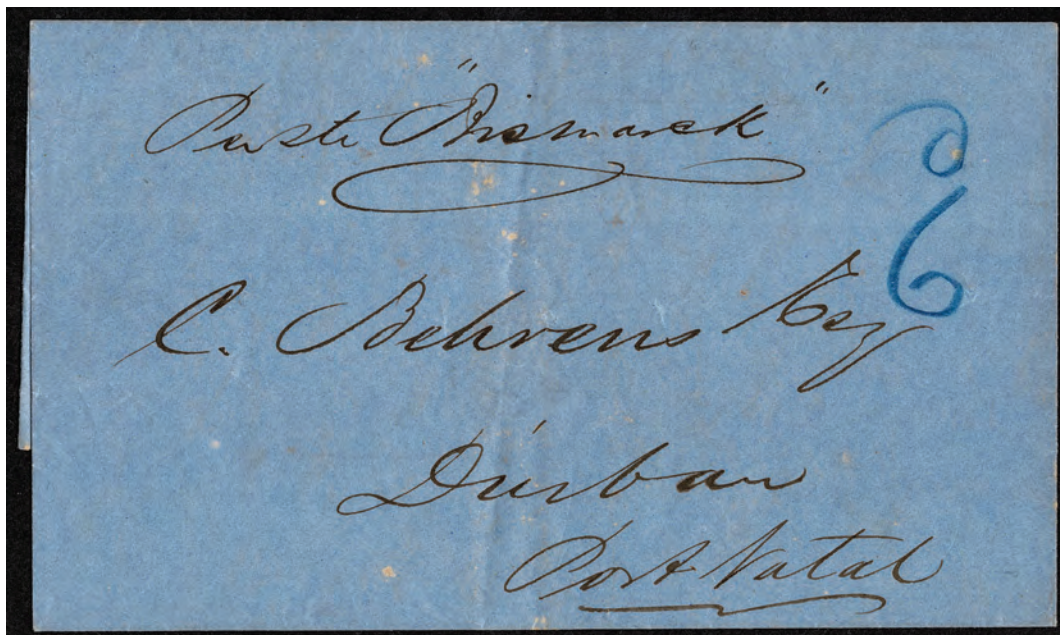 Per ste "Bismarck"
C. Behrens Esq
Durban
Port Natal